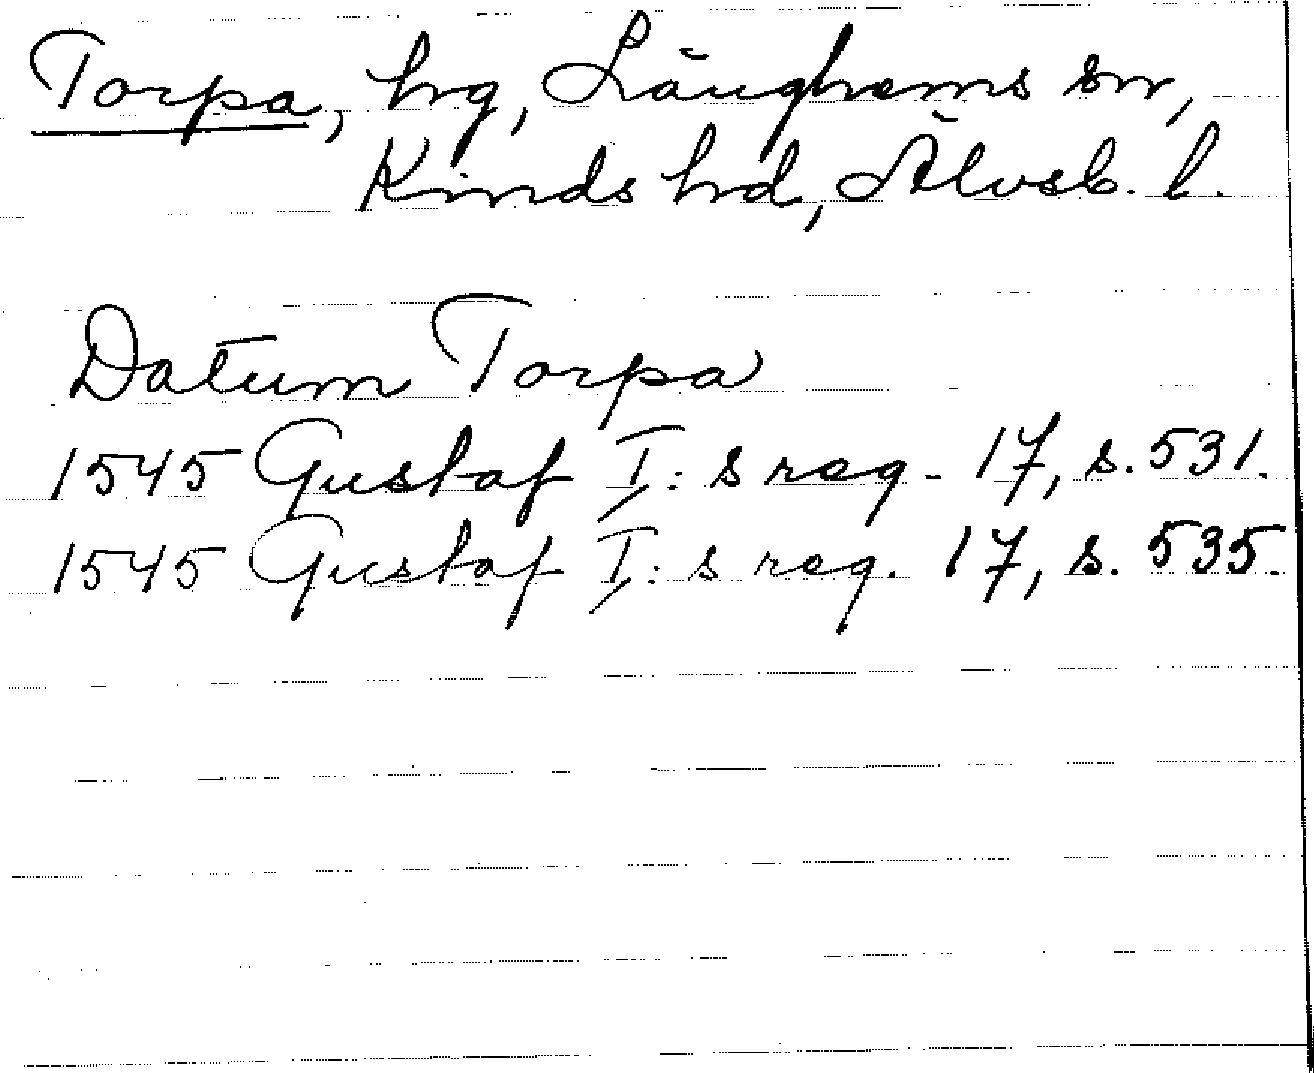 Torpa, hrg, Länghems sn,
Kinds hrd, Älvsb. l.
Datum Torpa
1545 Gustaf I:s reg. 17, s. 531.
1545 Gustaf I:s reg. 17, s. 535.